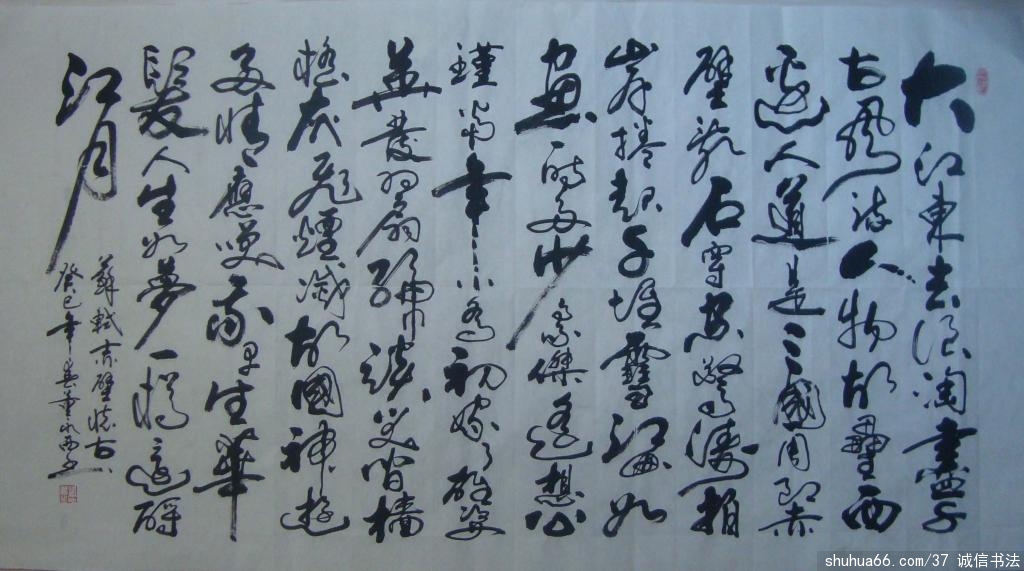 大江東去浪淘盡千
古風流人物故壘西
邊人道是三國周郎赤
壁亂石穿空驚濤拍
岸捲起千堆雪江如
畫一時多少豪傑遙想公
瑾當年小喬初嫁了雄姿
英發羽扇綸巾談笑間檣
櫓灰飛煙滅故國神遊
多情應笑我早生華
髮人生如夢一樽還酹
江月
蘇軾赤壁懷古
癸巳年
shuhua66.com/37 诚信书法